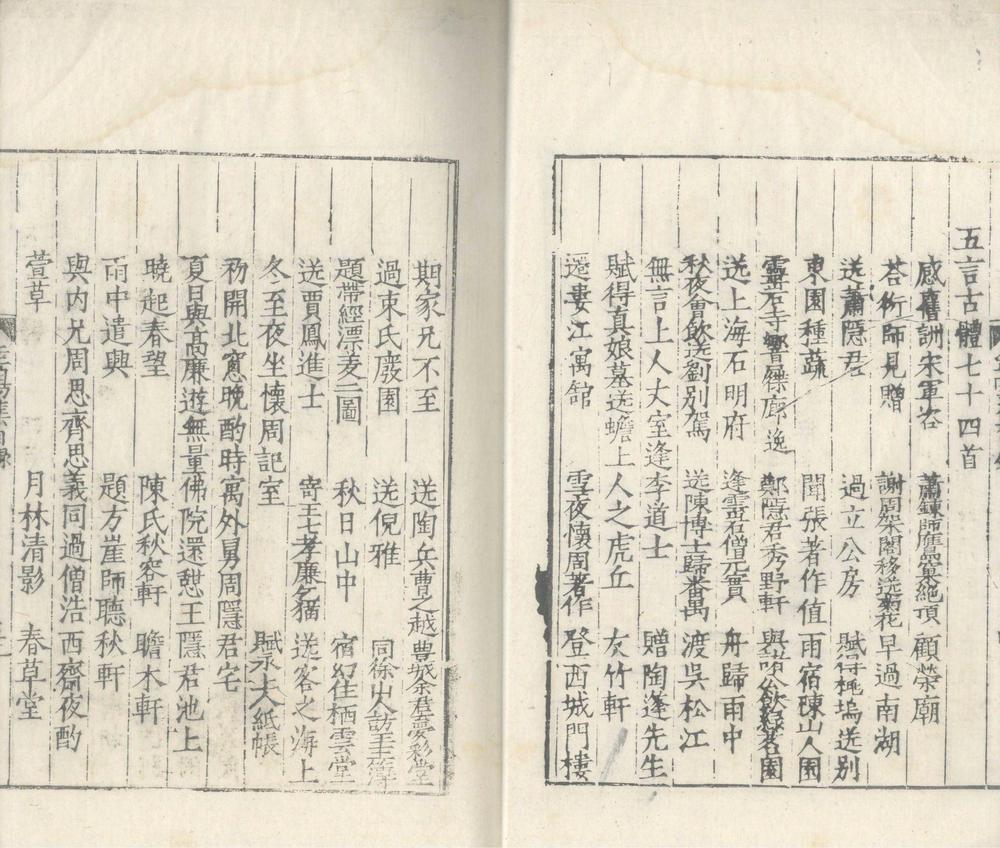 五言古體七十四首
感舊詶宋軍咨 蕭鍊師鷹窠絕頂 顧榮廟
荅衍師見贈 謝周架閣移送菊花 早過南湖
送蕭隱君 過立公房 賦得桃塢送別
東園種蔬 聞張著作值雨宿陳山人園
靈石寺響屧廊 逸鄭隱君秀野軒
送上海石明府 逢靈石僧元實 舟歸雨中
秋夜會飲送劉別駕 送陳博士歸番禺 渡吳松江
無言上人丈室逢李道士 贈陶蓬先生
賦得真娘墓送蟾上人之虎丘 友竹軒
還婁江寓舘 雪夜懷周著作 登西城門樓
期家兄不至 送陶兵曹之越 豊城余君夢彩堂
過束氏廢園 送倪雅 同徐山人訪王主簿
題帶經漂麦二圖 秋日山中 宿幻住栖雲堂
送賈鳳進士 寄王七孝廉乞猫 送客之海上
冬至夜坐懷周記室 賦永上人紙帳
初開北窻晚酌時寓外舅周隱君宅
夏日與高廉遊無量佛院還憇王隱君池上
曉起春望 陳氏秋容軒 瞻木軒
雨中遣興 題方崖師聽秋軒
與內兄周思齊思義同過僧浩西齋夜酌
萱草 月林清影 春草堂